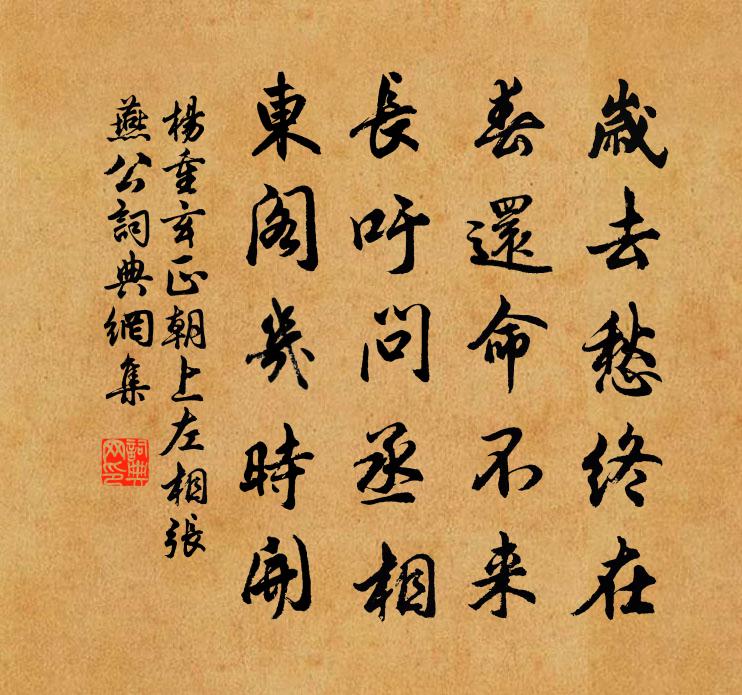 歲去愁終在
春還命不来
長吁問丞相
東閣幾時開
楊重玄正朝上左相張
燕公詞典網集
詞典网印